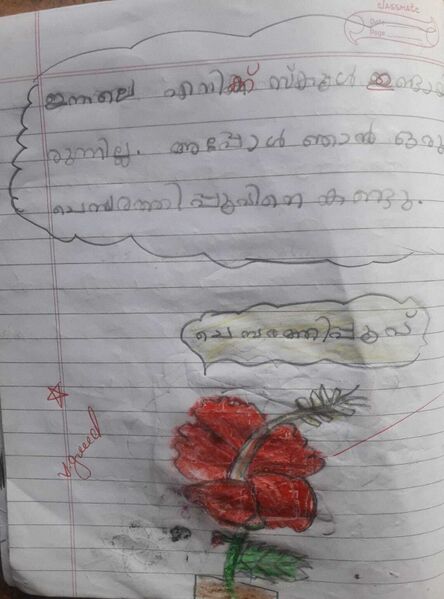 classmate
Date
Page
ഇന്നലെ എനിക്ക് സ്കൂൾ ഉണ്ടായി
രുന്നില്ല. അപ്പോൾ ഞാൻ ഒരു
ചെമ്പരത്തിപ്പൂവിനെ കണ്ടു.
ചെമ്പരത്തിപ്പൂവ്